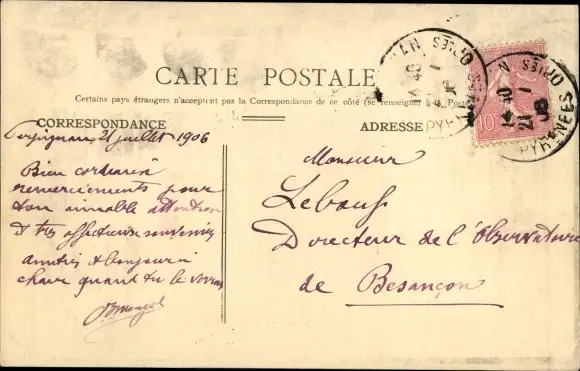 CARTE POSTALE
Certains pays étrangers n'acceptent pas la Correspondance de ce côté (se renseigner à la Poste
CORRESPONDANCE
ADRESSE
Perpignan 21 juillet 1906
Bien cordiaux
remerciements pour
ton aimable attention
& très affectueux souvenirs
amitiés & bonjour à
quand tu le verras
Monsieur
Lebeuf
Directeur de l'Observatoire
de Besançon
10
PYRENEES
21
PYRENEES
ORIES
14 40
21